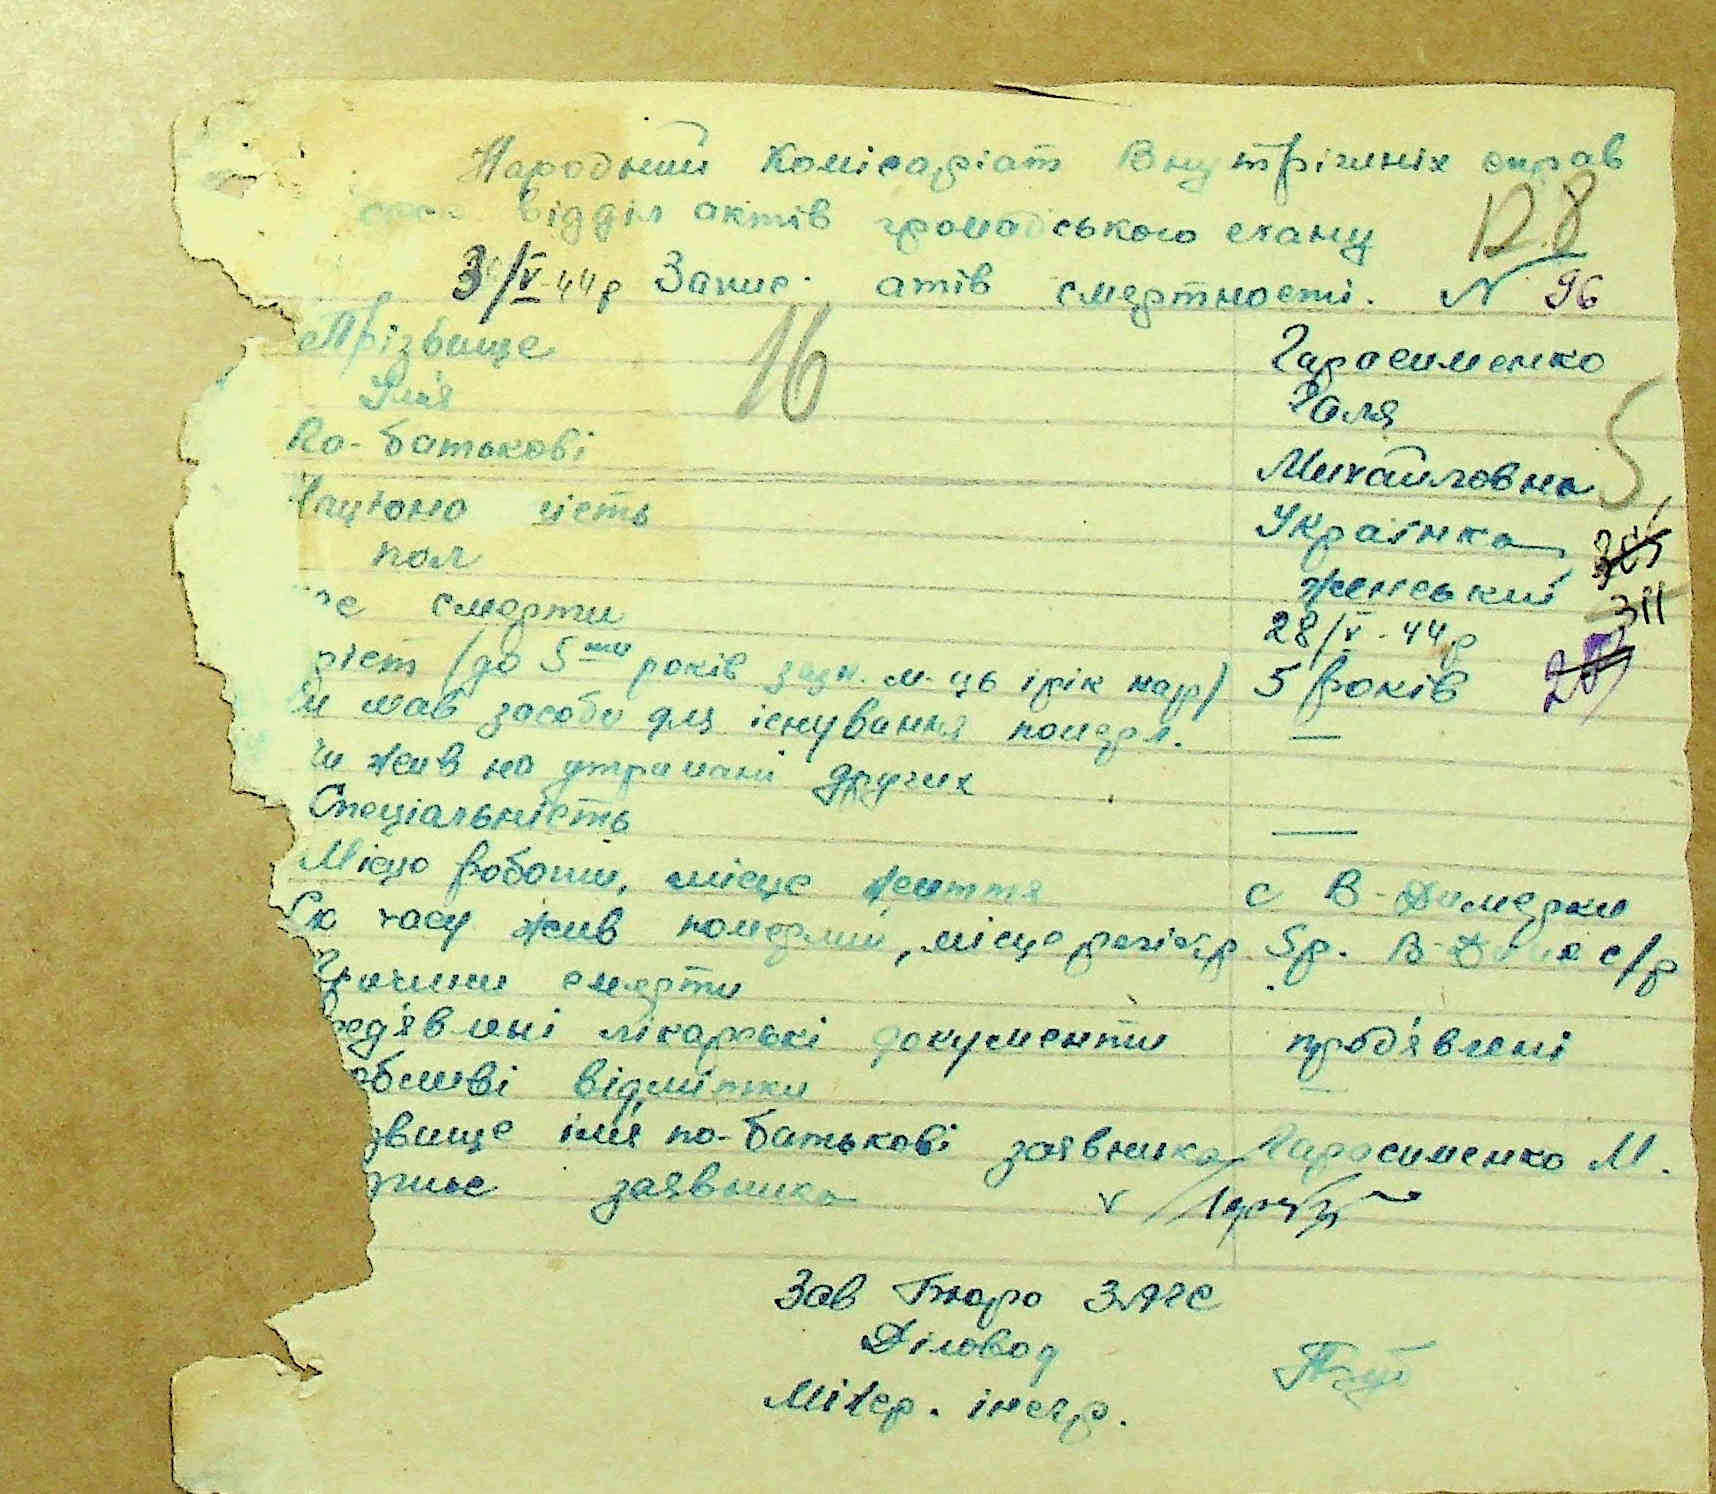 Народний Комісаріат Внутрішніх справ
відділ актів громадського стану 128
3/V-44р Запис атів смертності. N 96
Прізвище Гарасименко
16
Імя Галя
По-батькові Михайловна
5
Націона ність Українка
пол женський
311
смерти 28/V-44р
ріст (до 5ти років зазн. м-ць ірік нар) 5 років
и мав засоби для існування померл. —
и жив на утримані других
Спеціальність —
Місцо роботи, місце життя с В-Димерки
часу жив померлий, місце регістр. 5р. В-Дим с/р
Причини смерти
ред'явлені лікарські документи пред'явлені
обливі відмітки —
звище імя по-батькові заявника Гарасименко М.
заявника v
Зав Бюро ЗАГС
Діловод
Мілер. інстр.